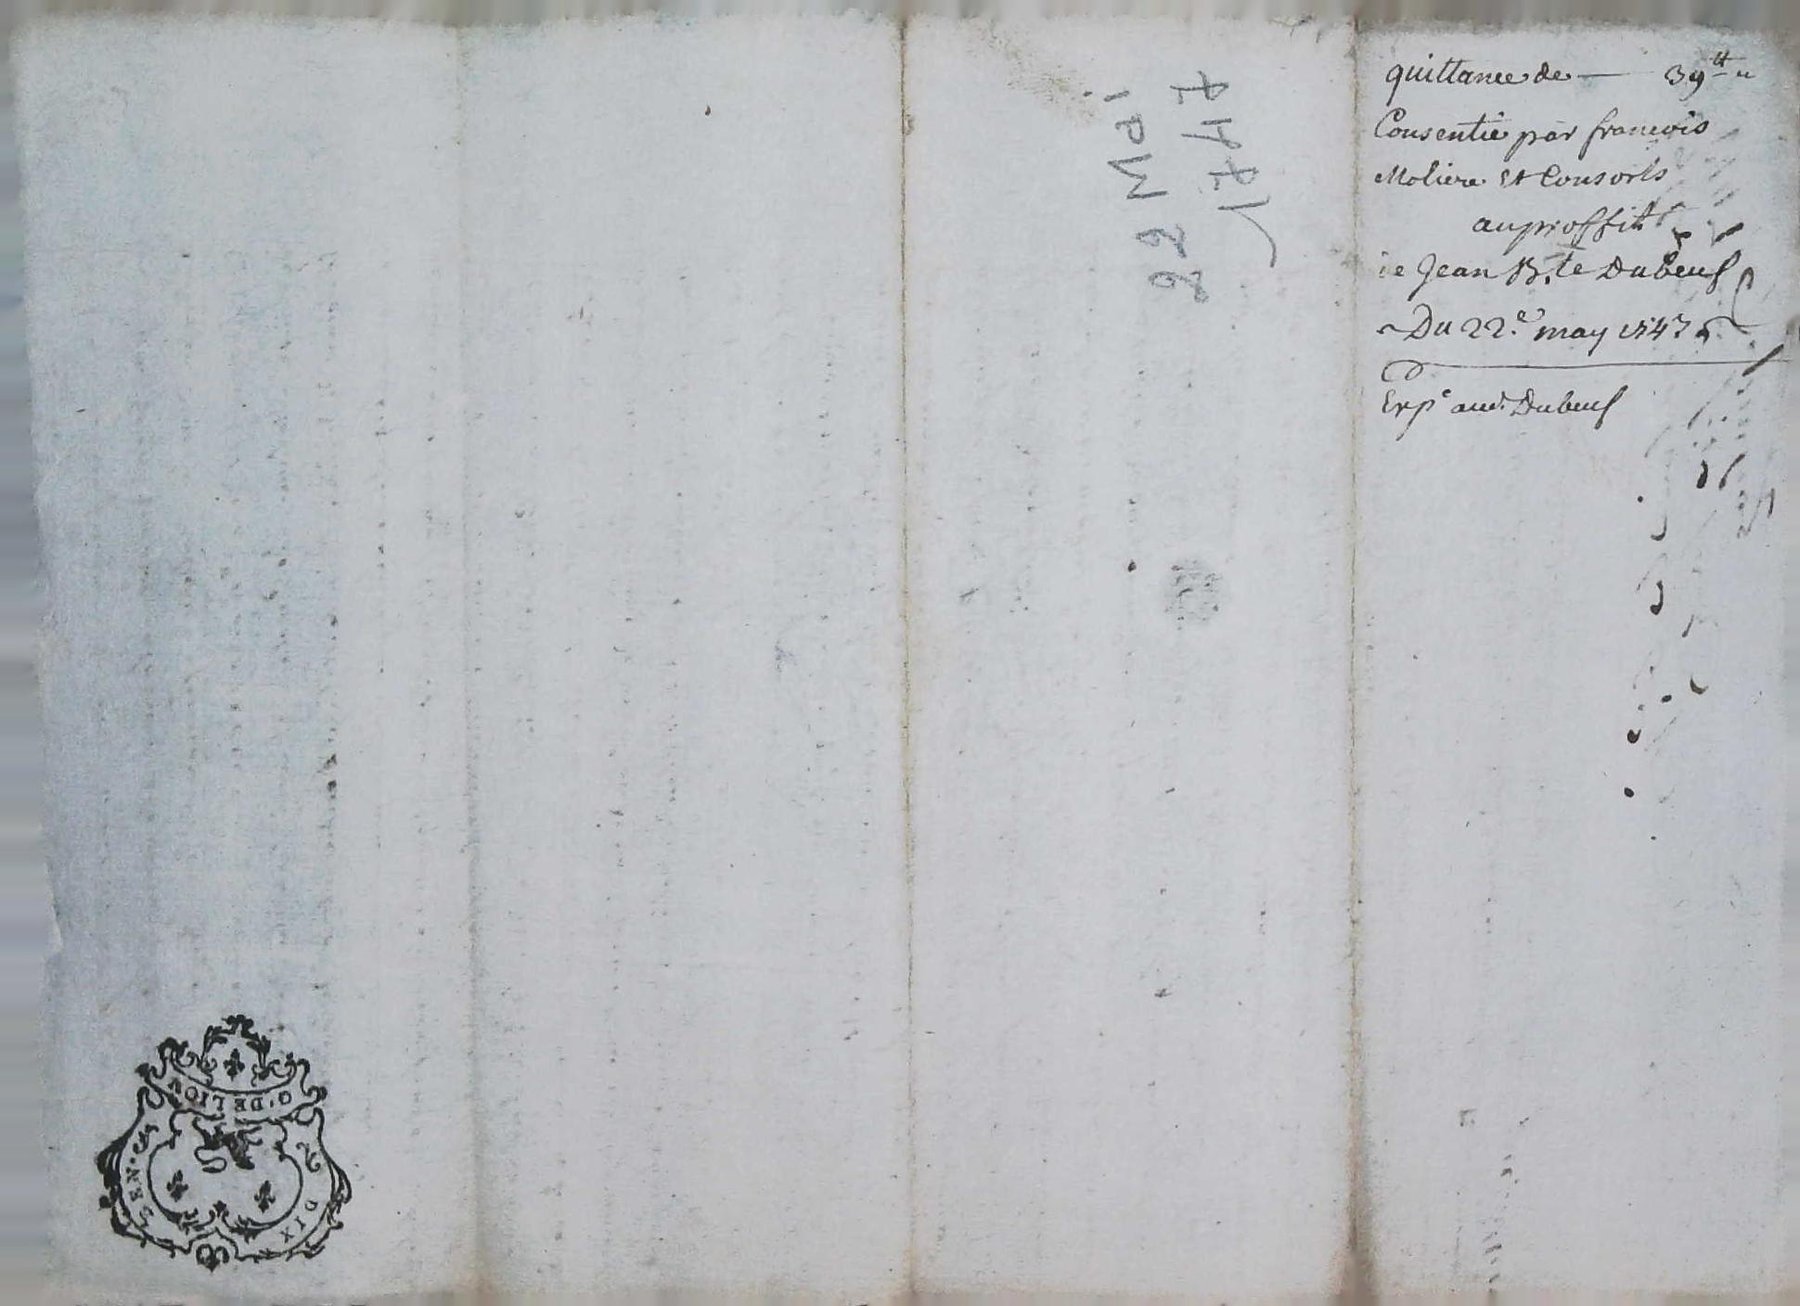 quittance de — 39ᵗᵗ "
Consentie par francois
Moliere et Consorts
au proffit
de Jean B.te Dubeuf
Du 22.e may 1747
Exp.e aud. Dubeuf
1747
1 PM 88
G. DE LION
DIX
DEN. S